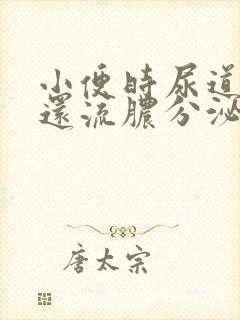 小便時尿道
還流膿分泌
唐太宗